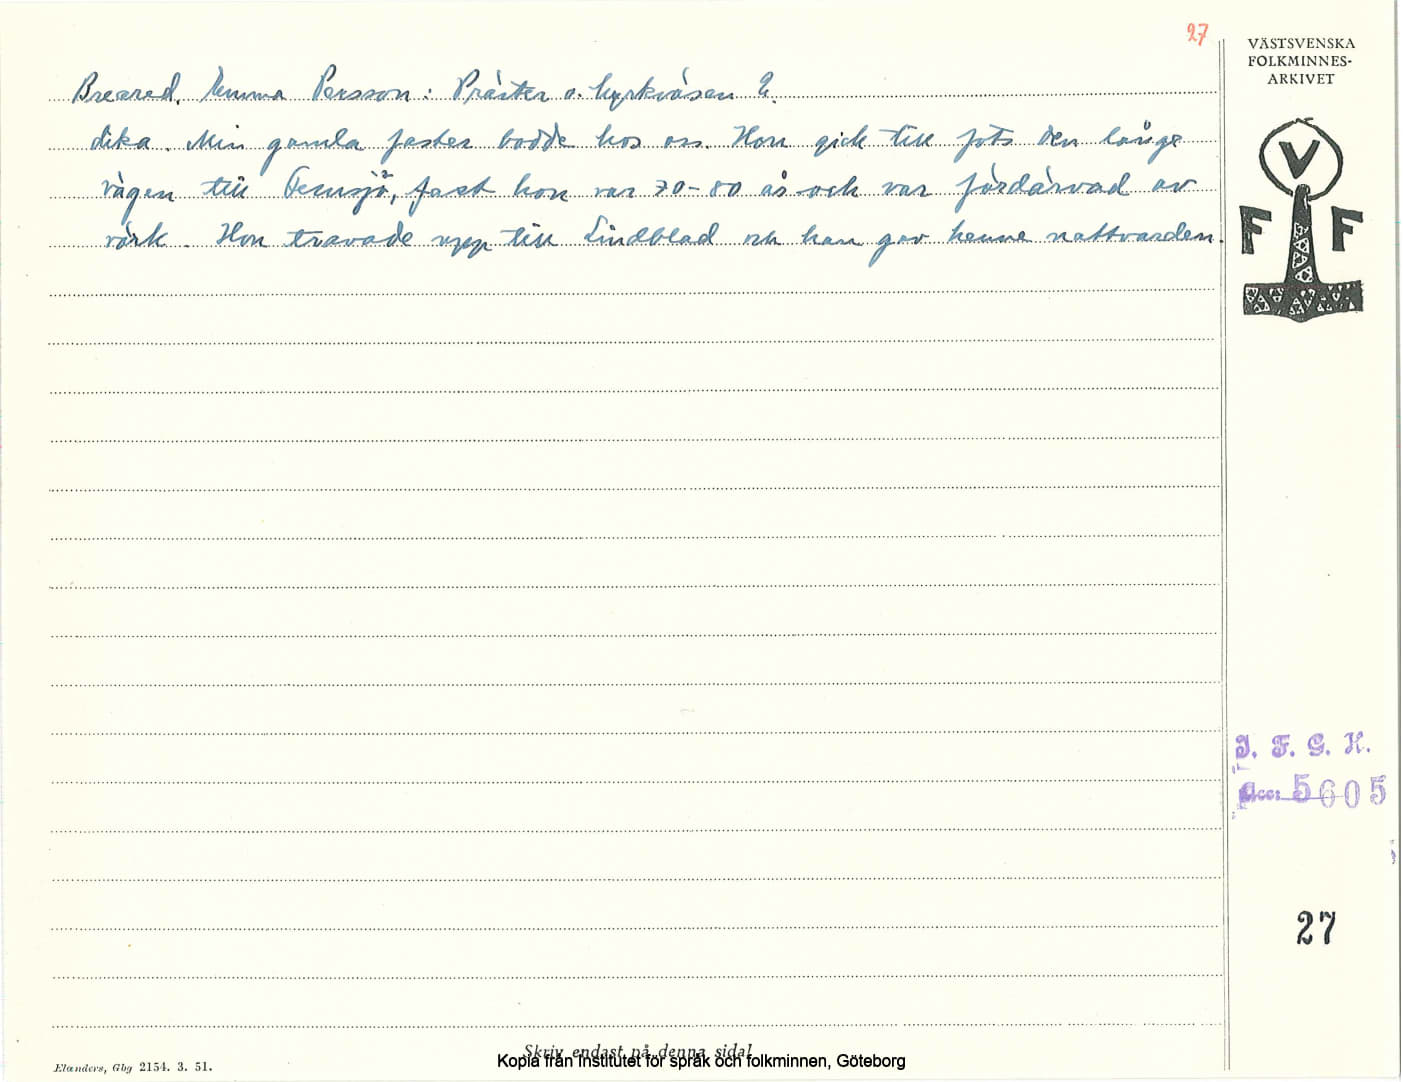 27
VÄSTSVENSKA
FOLKMINNES-
ARKIVET
Breared. Emma Persson: Präster o. kyrkväsen 2.
dika. Min gamla faster bodde hos oss. Hon gick till fots den långe
vägen till Femsjö, fast hon var 70-80 år och var fördärvad av
värk. Hon travade upp till Lindblad och han gav henne nattvarden.
V
F F
I. F. G. H.
Acc: 5605
27
Skriv endast på denna sida!
Kopia från Institutet för språk och folkminnen, Göteborg
Elanders, Gbg 2154. 3. 51.